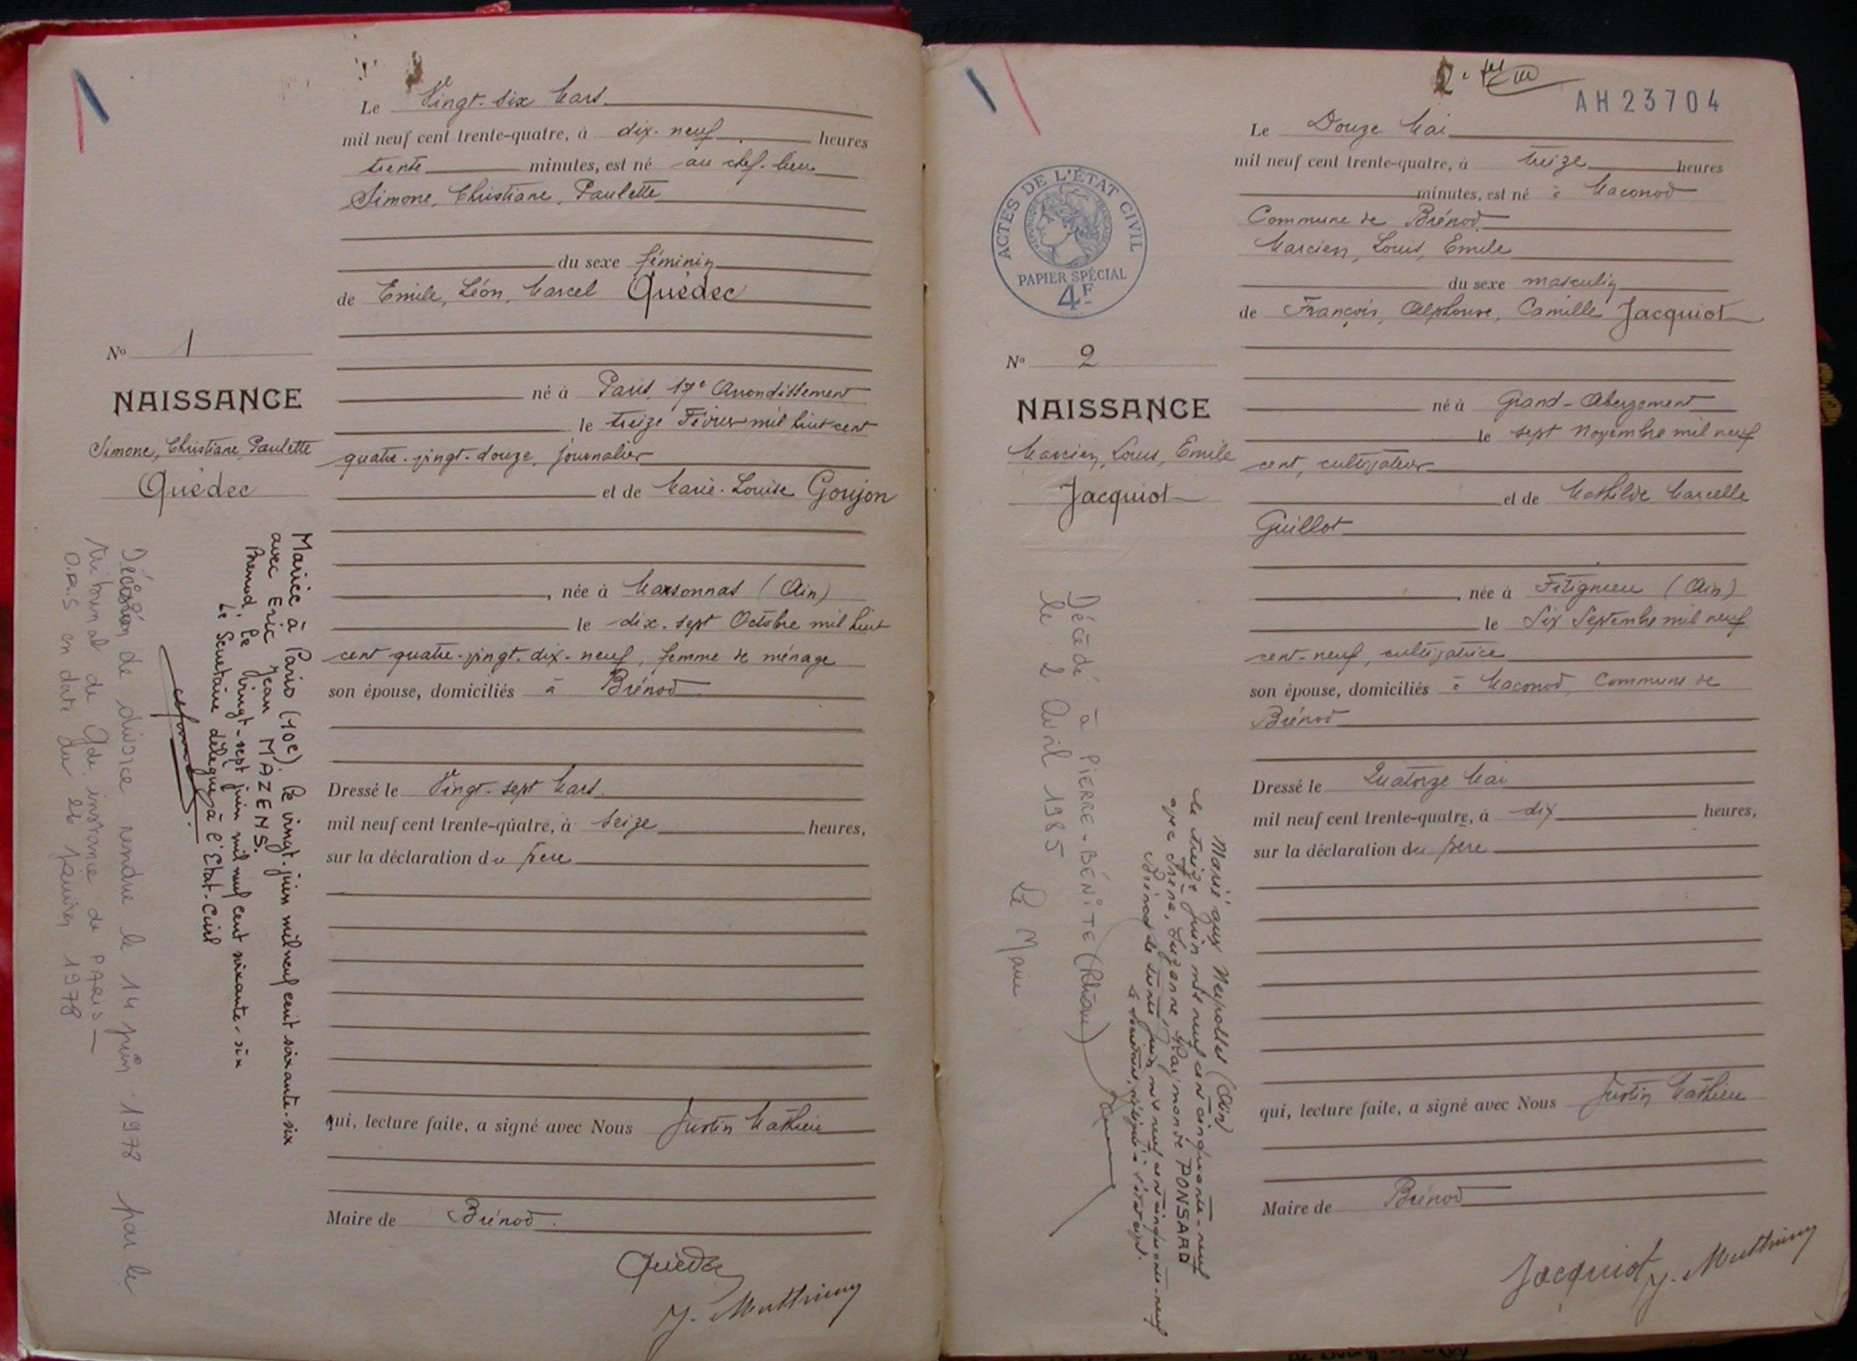 Le Vingt-six Mars
mil neuf cent trente-quatre, à dix-neuf heures
trente minutes, est né au chef-lieu
Simone, Christiane, Paulette
du sexe féminin
de Emile, Léon, Marcel Quédec
né à Paris, 17e Arrondissement
le treize Février mil huit cent
quatre-vingt-douze, journalier
et de Marie-Louise Goujon
, née à Marsonnas (Ain)
le dix-sept Octobre mil huit
cent quatre-vingt-dix-neuf, femme de ménage
son épouse, domiciliés à Brénod
Dressé le Vingt-sept Mars
mil neuf cent trente-quatre, à seize heures,
sur la déclaration du père
qui, lecture faite, a signé avec Nous Justin Mathieu
Maire de Brénod.
Quédec
No 1
NAISSANCE
Simone, Christiane, Paulette
Quédec
Mariée à Paris (10e). le vingt juin mil neuf cent soixante-six
avec Eric Jean MAZENS.
Brénod, le vingt-sept juin mil neuf cent soixante-six
Le Secrétaire délégué à l'Etat-Civil
Décision de divorce rendue le 14 juin 1978 par le
tribunal de Gde instance de PARIS
en date du 26 janvier 1978
AH23704
Le Douze Mai
mil neuf cent trente-quatre, à treize heures
minutes, est né à Maconod
Commune de Brénod
Marcien, Louis, Emile
du sexe masculin
de François, Alphonse, Camille Jacquiot
né à Grand-Abergement
le sept Novembre mil neuf
cent, cultivateur
et de Mathilde Marcelle
Guillot
, née à Fitignieu (Ain)
le Six Septembre mil neuf
cent-neuf, cultivatrice
son épouse, domiciliés à Maconod, Commune de
Brénod
Dressé le Quatorze Mai
mil neuf cent trente-quatre, à dix heures,
sur la déclaration du père
qui, lecture faite, a signé avec Nous Justin Mathieu
Maire de Brénod
Jacquiot
ACTES DE L'ÉTAT CIVIL
PAPIER SPÉCIAL
4F
No 2
NAISSANCE
Marcien, Louis, Emile
Jacquiot
Marié aux Neyrolles (Ain)
le treize Juin mil neuf cent cinquante-neuf
avec Irène, Suzanne Raymonde PONSARD
Brénod le trente Juin mil neuf cent cinquante-neuf
le Secrétaire, délégué à l'état civil.
Décédé à PIERRE-BÉNITE (Rhône)
le 2 Avril 1985
Le Maire